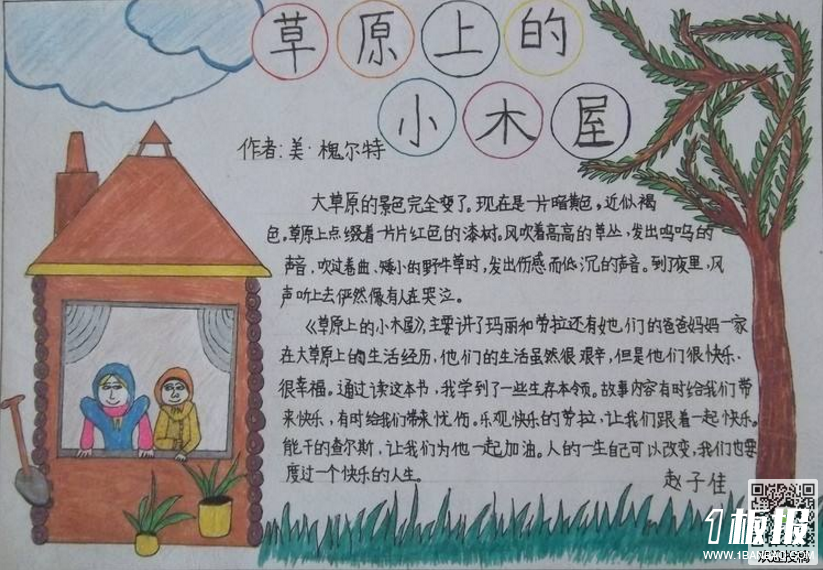 草原上的
小木屋
作者:美·槐尔特
大草原的景色完全变了。现在是一片暗黄色,近似褐
色,草原上点缀着一片片红色的漆树。风吹着高高的草丛,发出呜呜的
声音,吹过卷曲、矮小的野牛草时,发出伤感而低沉的声音。到了夜里,风
声听上去俨然像有人在哭泣。
《草原上的小木屋》,主要讲了玛丽和劳拉还有她们的爸爸妈妈一家
在大草原上的生活经历,他们的生活虽然很艰辛,但是他们很快乐、
很幸福。通过读这本书,我学到了一些生存本领。故事内容有时给我们带
来快乐,有时给我们带来忧伤。乐观快乐的劳拉,让我们跟着一起快乐。
能干的查尔斯,让我们为他一起加油。人的一生自己可以改变,我们也要
度过一个快乐的人生。
赵子佳
1板报
WWW.1BANBAO.COM
欢迎投稿